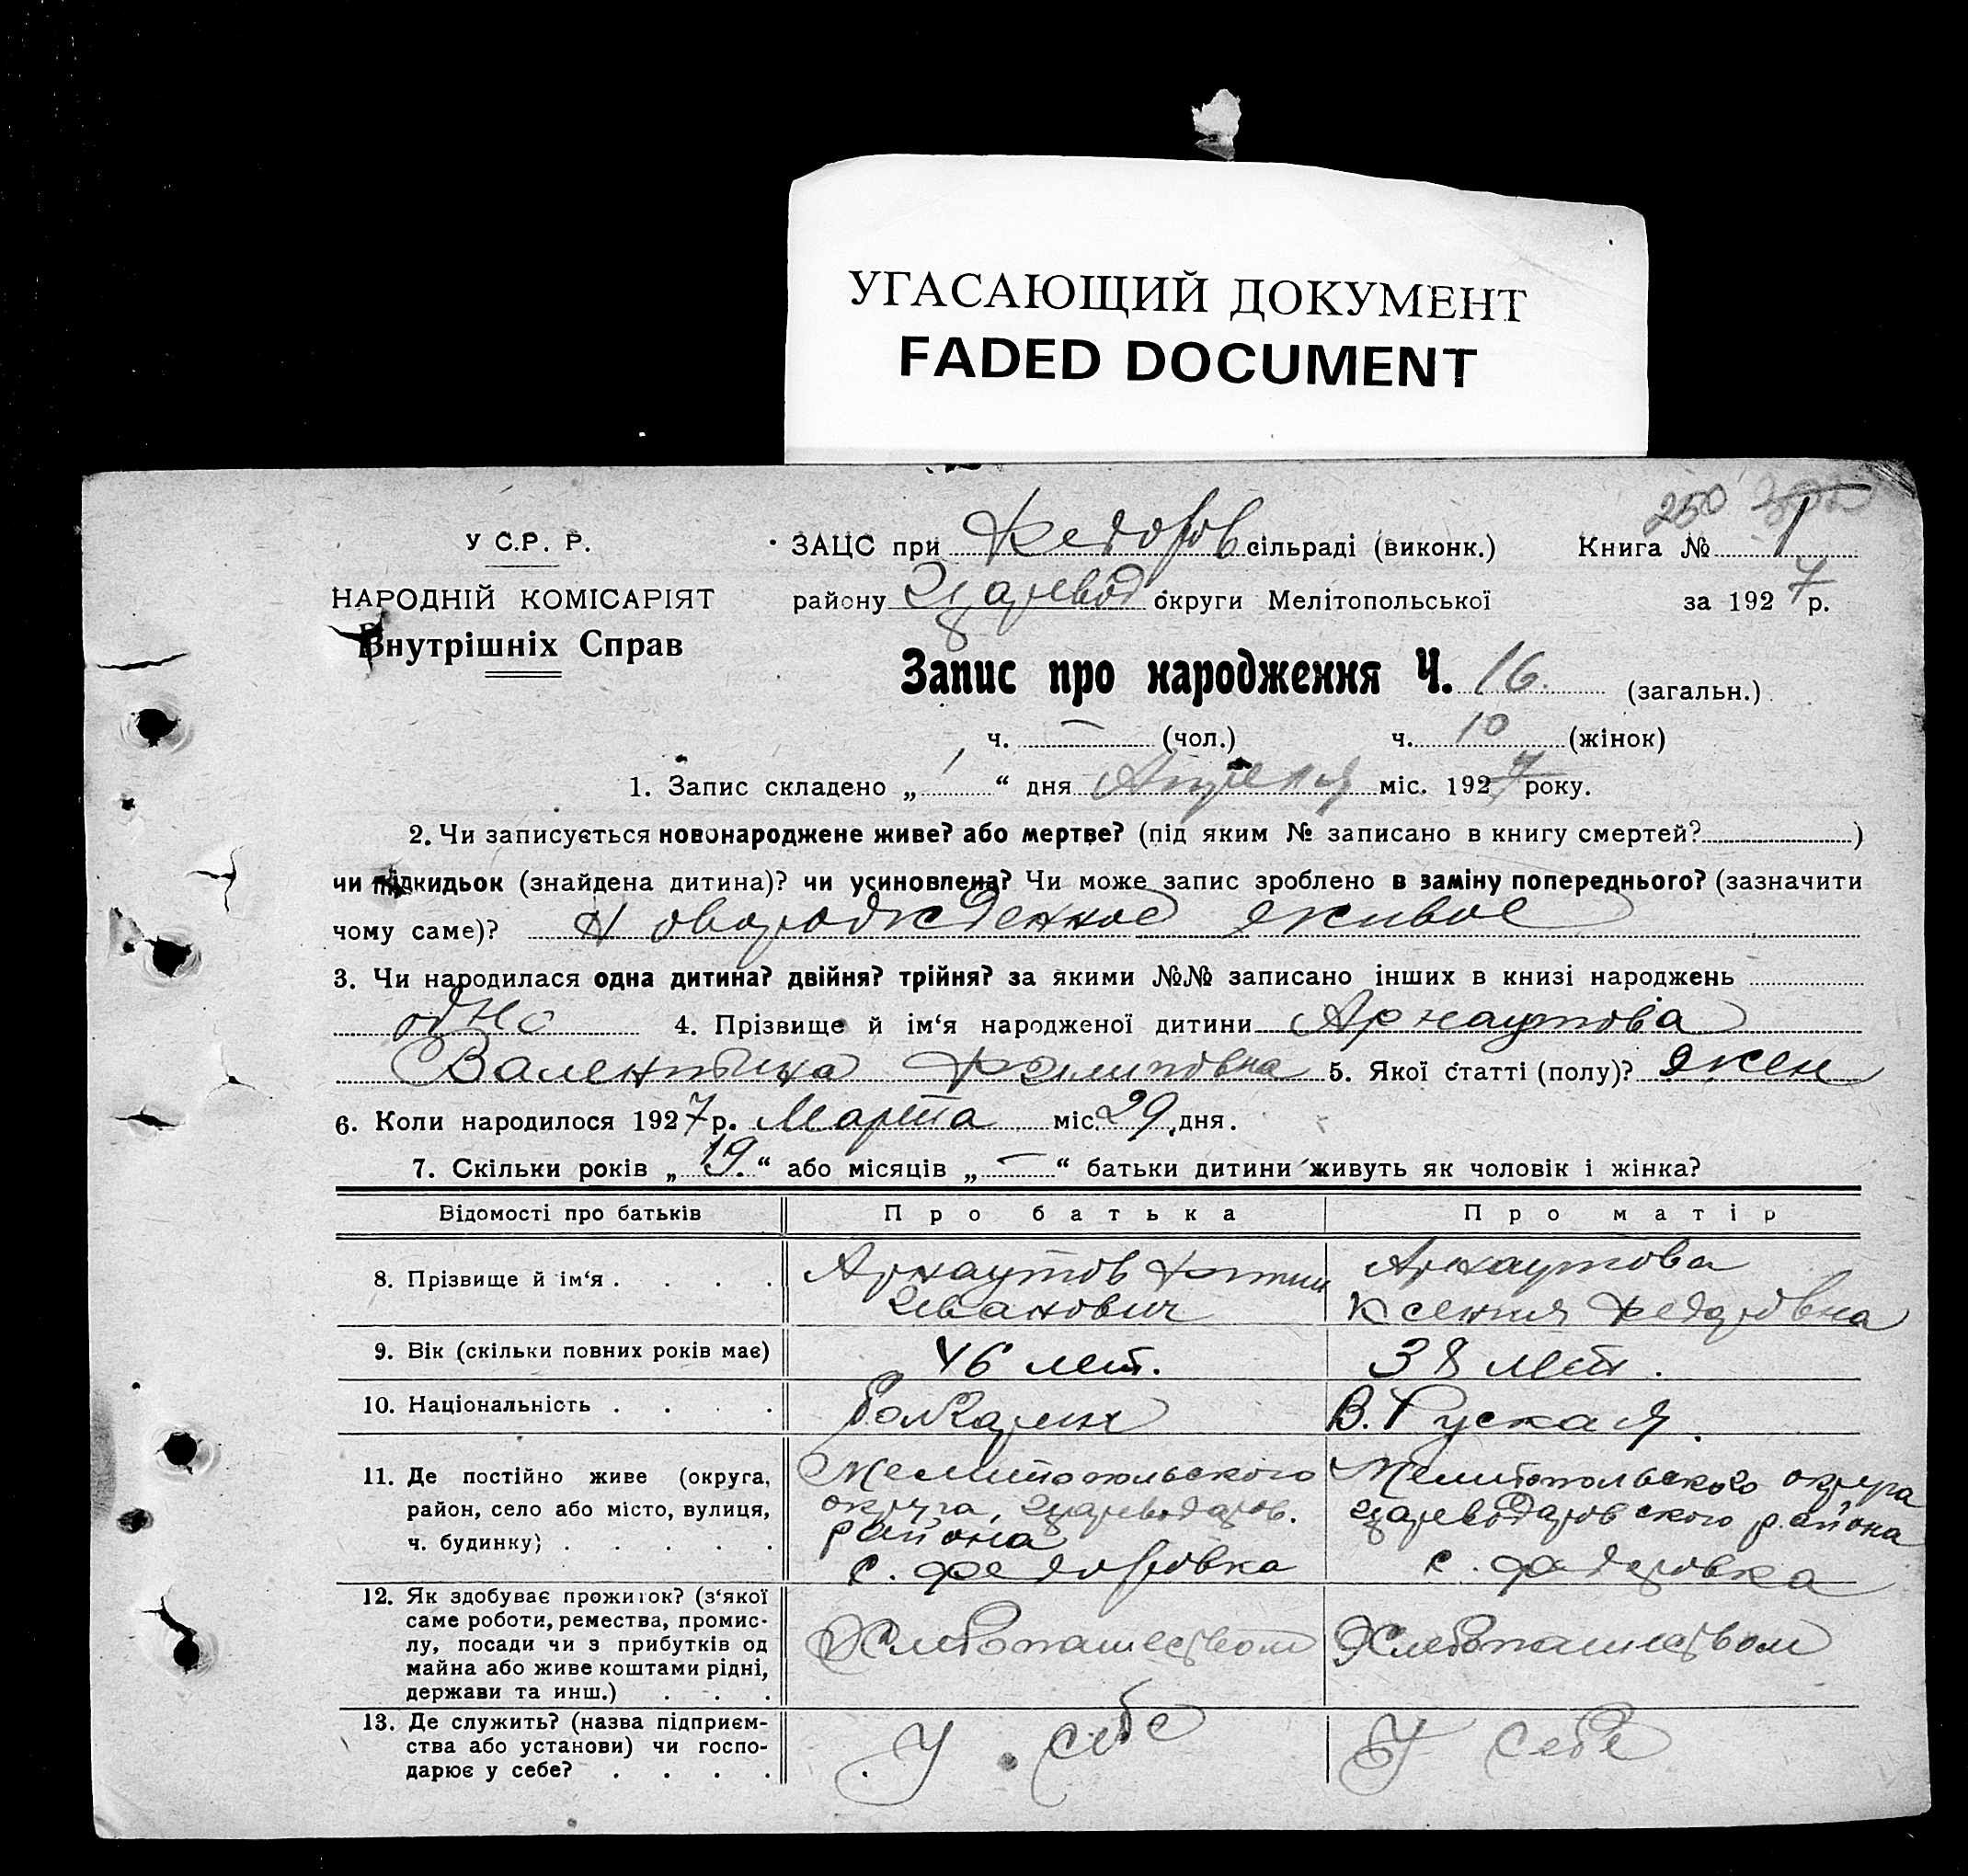 УГАСАЮЩИЙ ДОКУМЕНТ
FADED DOCUMENT
250
У С.Р. Р.
ЗАЦС при Федоров сільраді (виконк.) Книга № 1
НАРОДНІЙ КОМІСАРІЯТ
району Царевод округи Мелітопольської за 1927 р.
Внутрішніх Справ
Запис про народження Ч. 16 (загальн.)
ч. — (чол.) ч. 10 (жінок)
1. Запис складено „ 1 “ дня Апреля міс. 1927 року.
2. Чи записується новонароджене живе? або мертве? (під яким № записано в книгу смертей? )
чи підкидьок (знайдена дитина)? чи усиновлена? Чи може запис зроблено в заміну попереднього? (зазначити
чому саме)? Новорожденное живое
3. Чи народилася одна дитина? двійня? трійня? за якими №№ записано інших в книзі народжень
одно 4. Прізвище й ім‘я народженої дитини Арнаутова
Валентина 5. Якої статті (полу)? жен
6. Коли народилося 1927 р. Марта міс. 29 дня.
7. Скільки років „ 19 “ або місяців „ — “ батьки дитини живуть як чоловік і жінка?
Відомості про батьків Про батька Про матір
8. Прізвище й ім‘я . . . . Арнаутов Арнаутова
Иванович Ксения Федоровна
9. Вік (скільки повних років має) 46 лет. 38 лет.
10. Національність . . . . Болгарин В. Руская.
11. Де постійно живе (округа, Мелитопольского Мелитопольского округа
район, село або місто, вулиця, округа, Цареводаров. Цареводаровского района
ч. будинку) . . . . . района
с. Федоровка с. Федоровка
12. Як здобуває прожиток? (з‘якої
саме роботи, ремества, промис-
лу, посади чи з прибутків од Хлебопашеством Хлебопашеством
майна або живе коштами рідні,
держави та инш.) . . .
13. Де служить? (назва підприєм-
ства або установи) чи госпо- У себе У себе
дарює у себе? . . . .